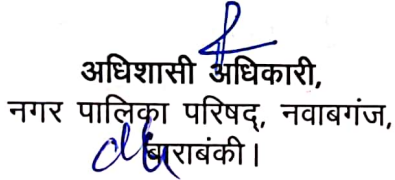 अधिशासी अधिकारी,
नगर पालिका परिषद्, नवाबगंज,
बाराबंकी।